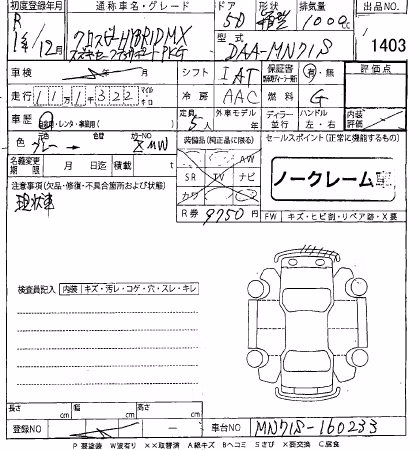 初度登録年月 通称車名・グレード ドア 形状 排気量 出品NO.
R 1年/12月 クロスビーHYBRID MX 5D 箱型 1000cc
スズキセーフティサポートPKG 型式 DAA-MN71S 1403
車検 年 月 シフト IAT 保証書 有・無 評価点
走行 111322 マイル キロ 冷房 AAC 燃料 G
車歴 自家用・レンタ・事業用( ) 定員 5人 外車モデル 年 ディーラー 並行 ハンドル 左・右 内装評価
色 元色 グレー → 色替 カラーNO ZMW 装備品(純正品に限る) セールスポイント(正常に機能するもの)
名義変更期限 月 日迄 積載 t AW
SR TV ナビ ノークレーム車
注意事項(欠品・修復・不具合箇所および状態) カワ
現状車 R券 9750円 FW キズ・ヒビ割・リペア跡・X要
検査員記入 内装 キズ・汚レ・コゲ・穴・スレ・キレ
長さ cm 幅 cm 高さ cm
登録NO 車台NO MN71S-160233
P要塗装 W波有り XX取替済 A線キズ Bヘコミ Sさび X要交換 C腐食